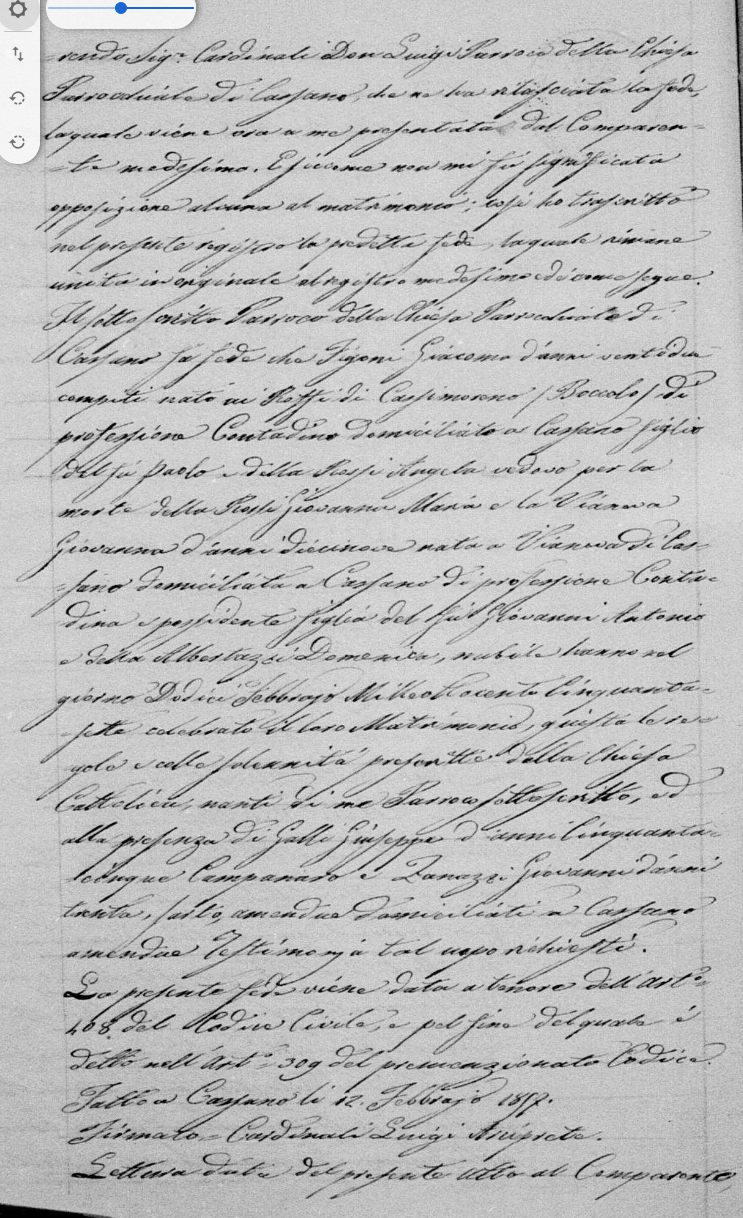 =rendo Sig.r Cardinali Don Luigi Parroco della Chiesa
Parrocchiale di Cassano, che ne ha rilasciata la fede,
la quale viene ora a me presentata dal Comparen=
=te medesimo. E siccome non mi fù significata
opposizione alcuna al matrimonio; così ho trascritto
nel presente registro la predetta fede, la quale rimane
unita in originale al registro medesimo ed è come segue.
Il sottoscritto Parroco della Chiesa Parrocchiale di
Cassano fa fede che Figoni Giacomo d'anni ventidue
compiti nato ai Rossi di Cassimoreno (Boccolo) di
professione Contadino domiciliato a Cassano figlio
del fù Paolo e della Rossi Angela vedovo per la
morte della Rossi Giovanna Maria e la Vianova
Giovanna d'anni diecinove nata a Vianova di Cas=
=sano domiciliata a Cassano di professione Conta=
dina e possidente figlia del fù Giovanni Antonio
e della Albertazzi Domenica, nubile hanno nel
giorno Dodici Febbrajo Mille ottocento Cinquanta=
sette celebrato il loro Matrimonio, giusta le re=
gole e colle solennità prescritte dalla Chiesa
Cattolica, nanti di me Parroco sottoscritto, ed
alla presenza di Galli Giuseppe d'anni Cinquanta=
cinque Campanaro e Zanazzi Giovanni d'anni
trenta, sarto, amendue domiciliati a Cassano
amendue Testimonj a tal uopo richiesti.
La presente fede viene data a tenore dell'Art.o
108. del Codice Civile, e pel fine del quale è
detto nell'Art.o 309 del premenzionato Codice.
Fatto a Cassano li 12. Febbrajo 1857.
Firmato = Cardinali Luigi Arciprete.
Lettura data del presente atto al Comparente,